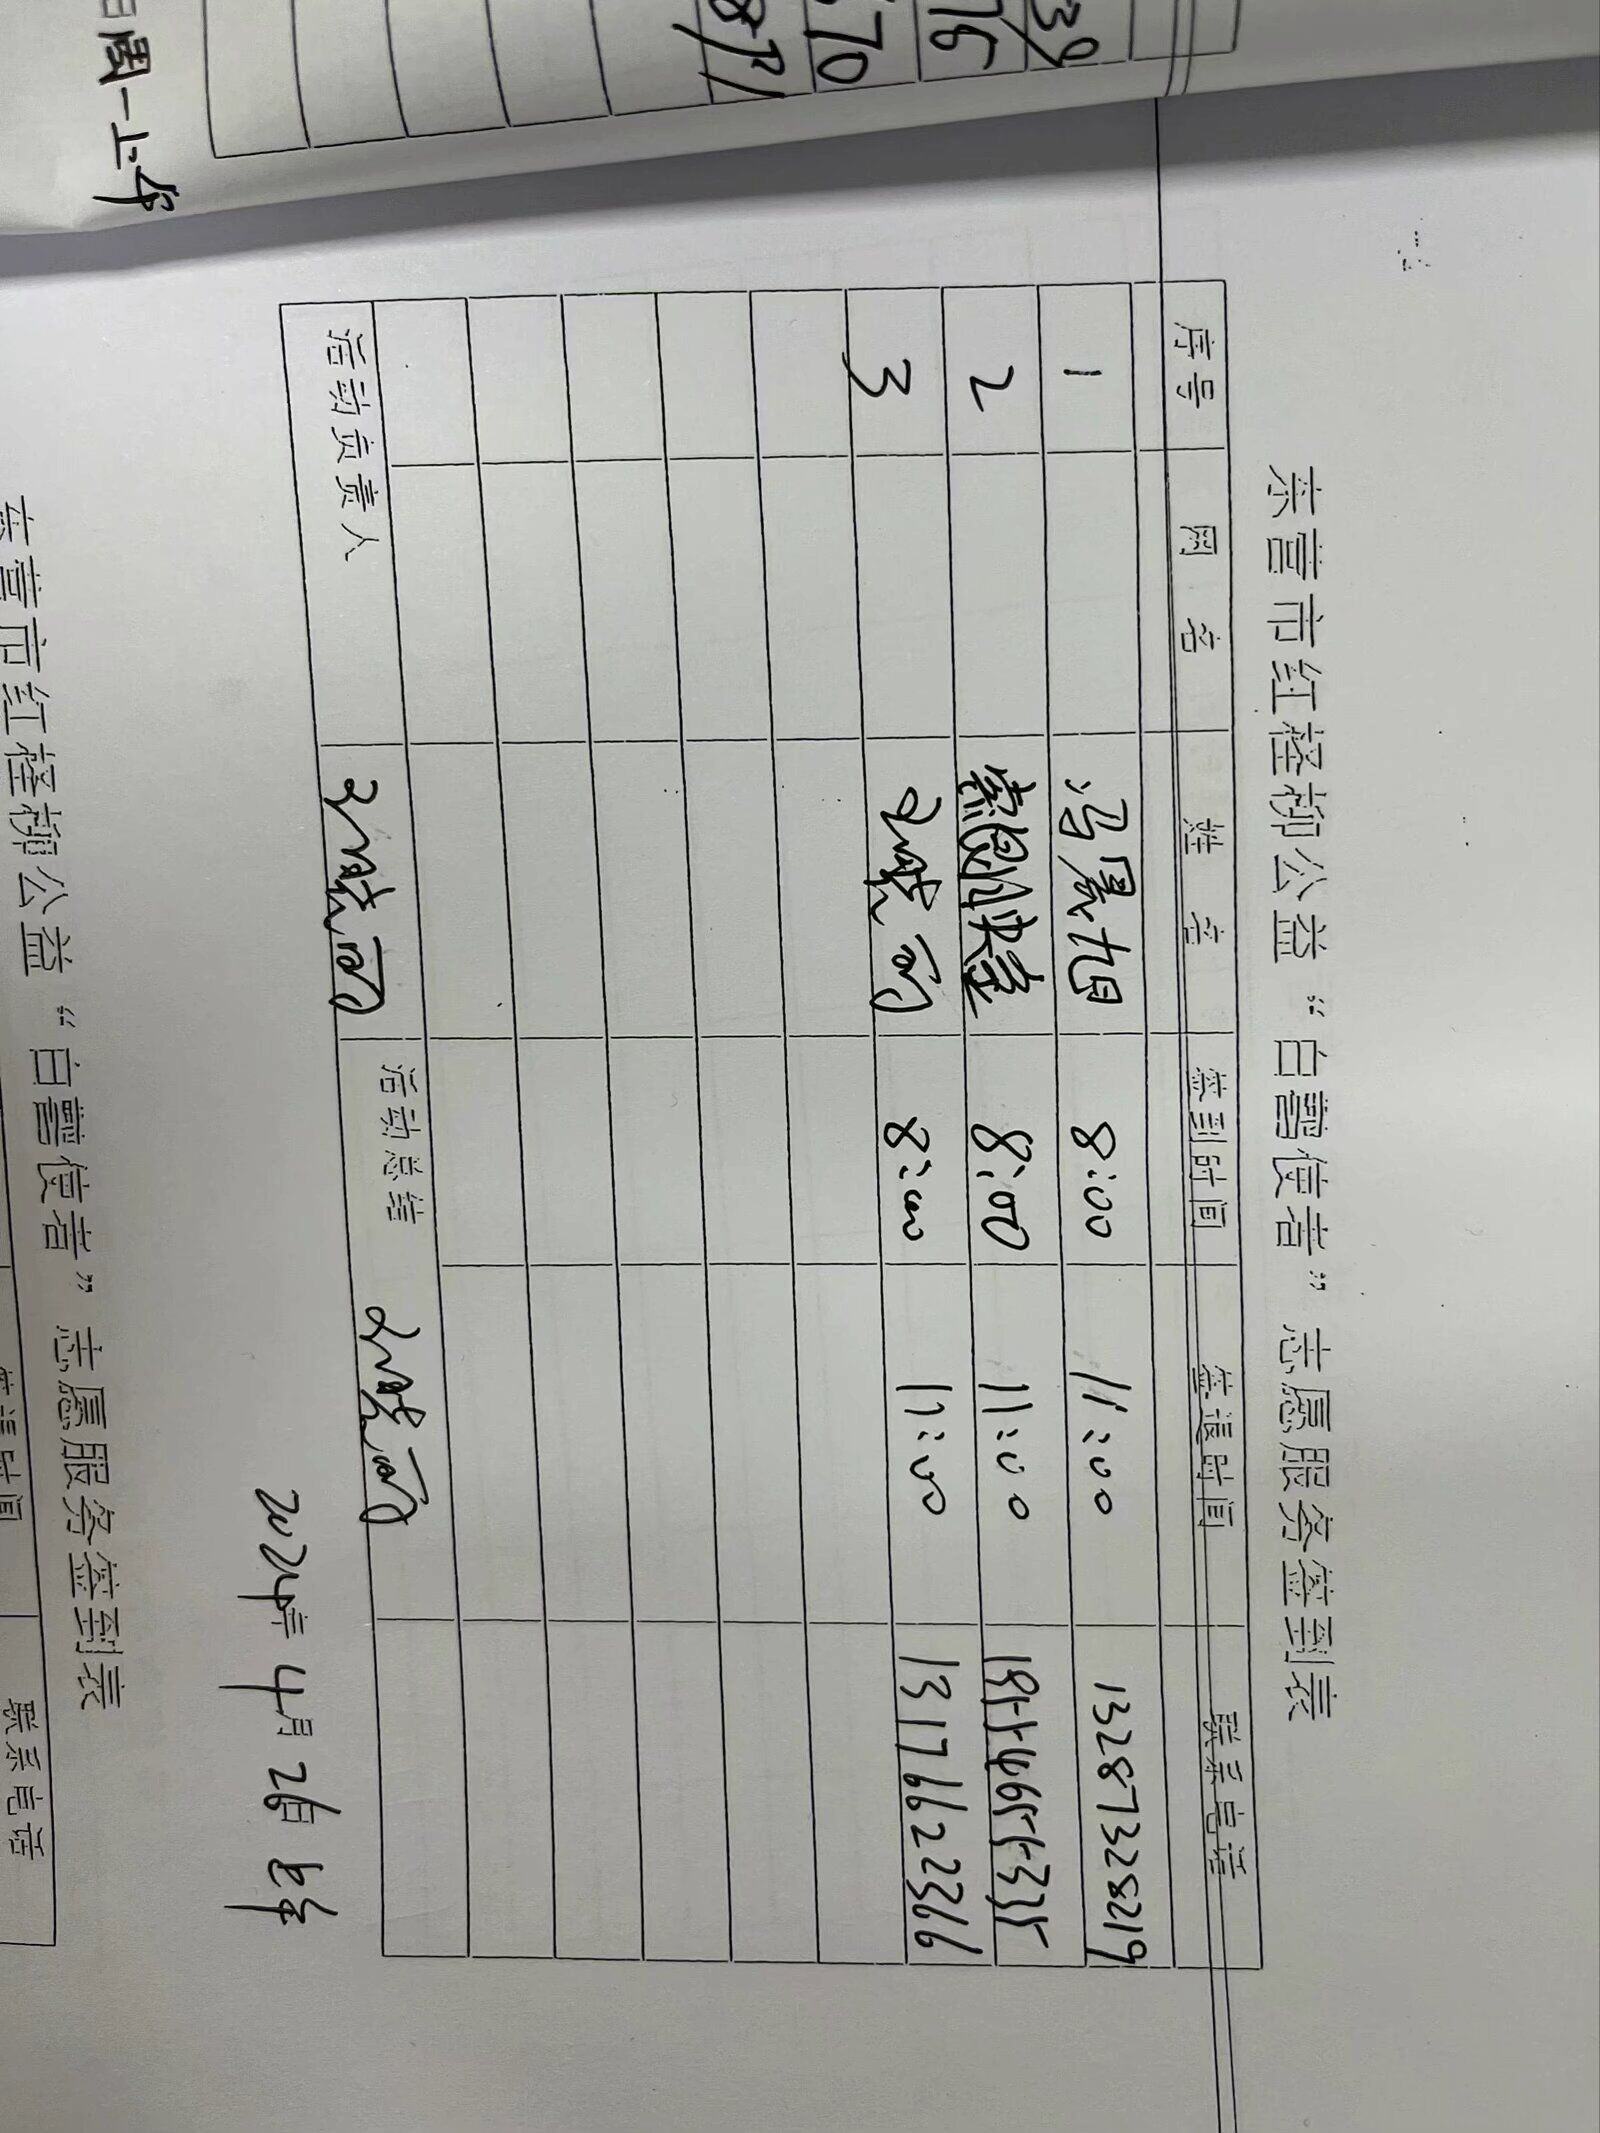 东营市红柽柳公益“白鹭使者”志愿服务签到表
序号 网名 姓名 签到时间 签退时间 联系电话
1 冯晨旭 8:00 11:00 13287328219
2 8:00 11:00
3 8:00 11:00 13176622366
活动负责人 活动总结
2024年4月2日上午
周一上午
39
76
70
东营市红柽柳公益“白鹭使者”志愿服务签到表
签退时间 联系电话